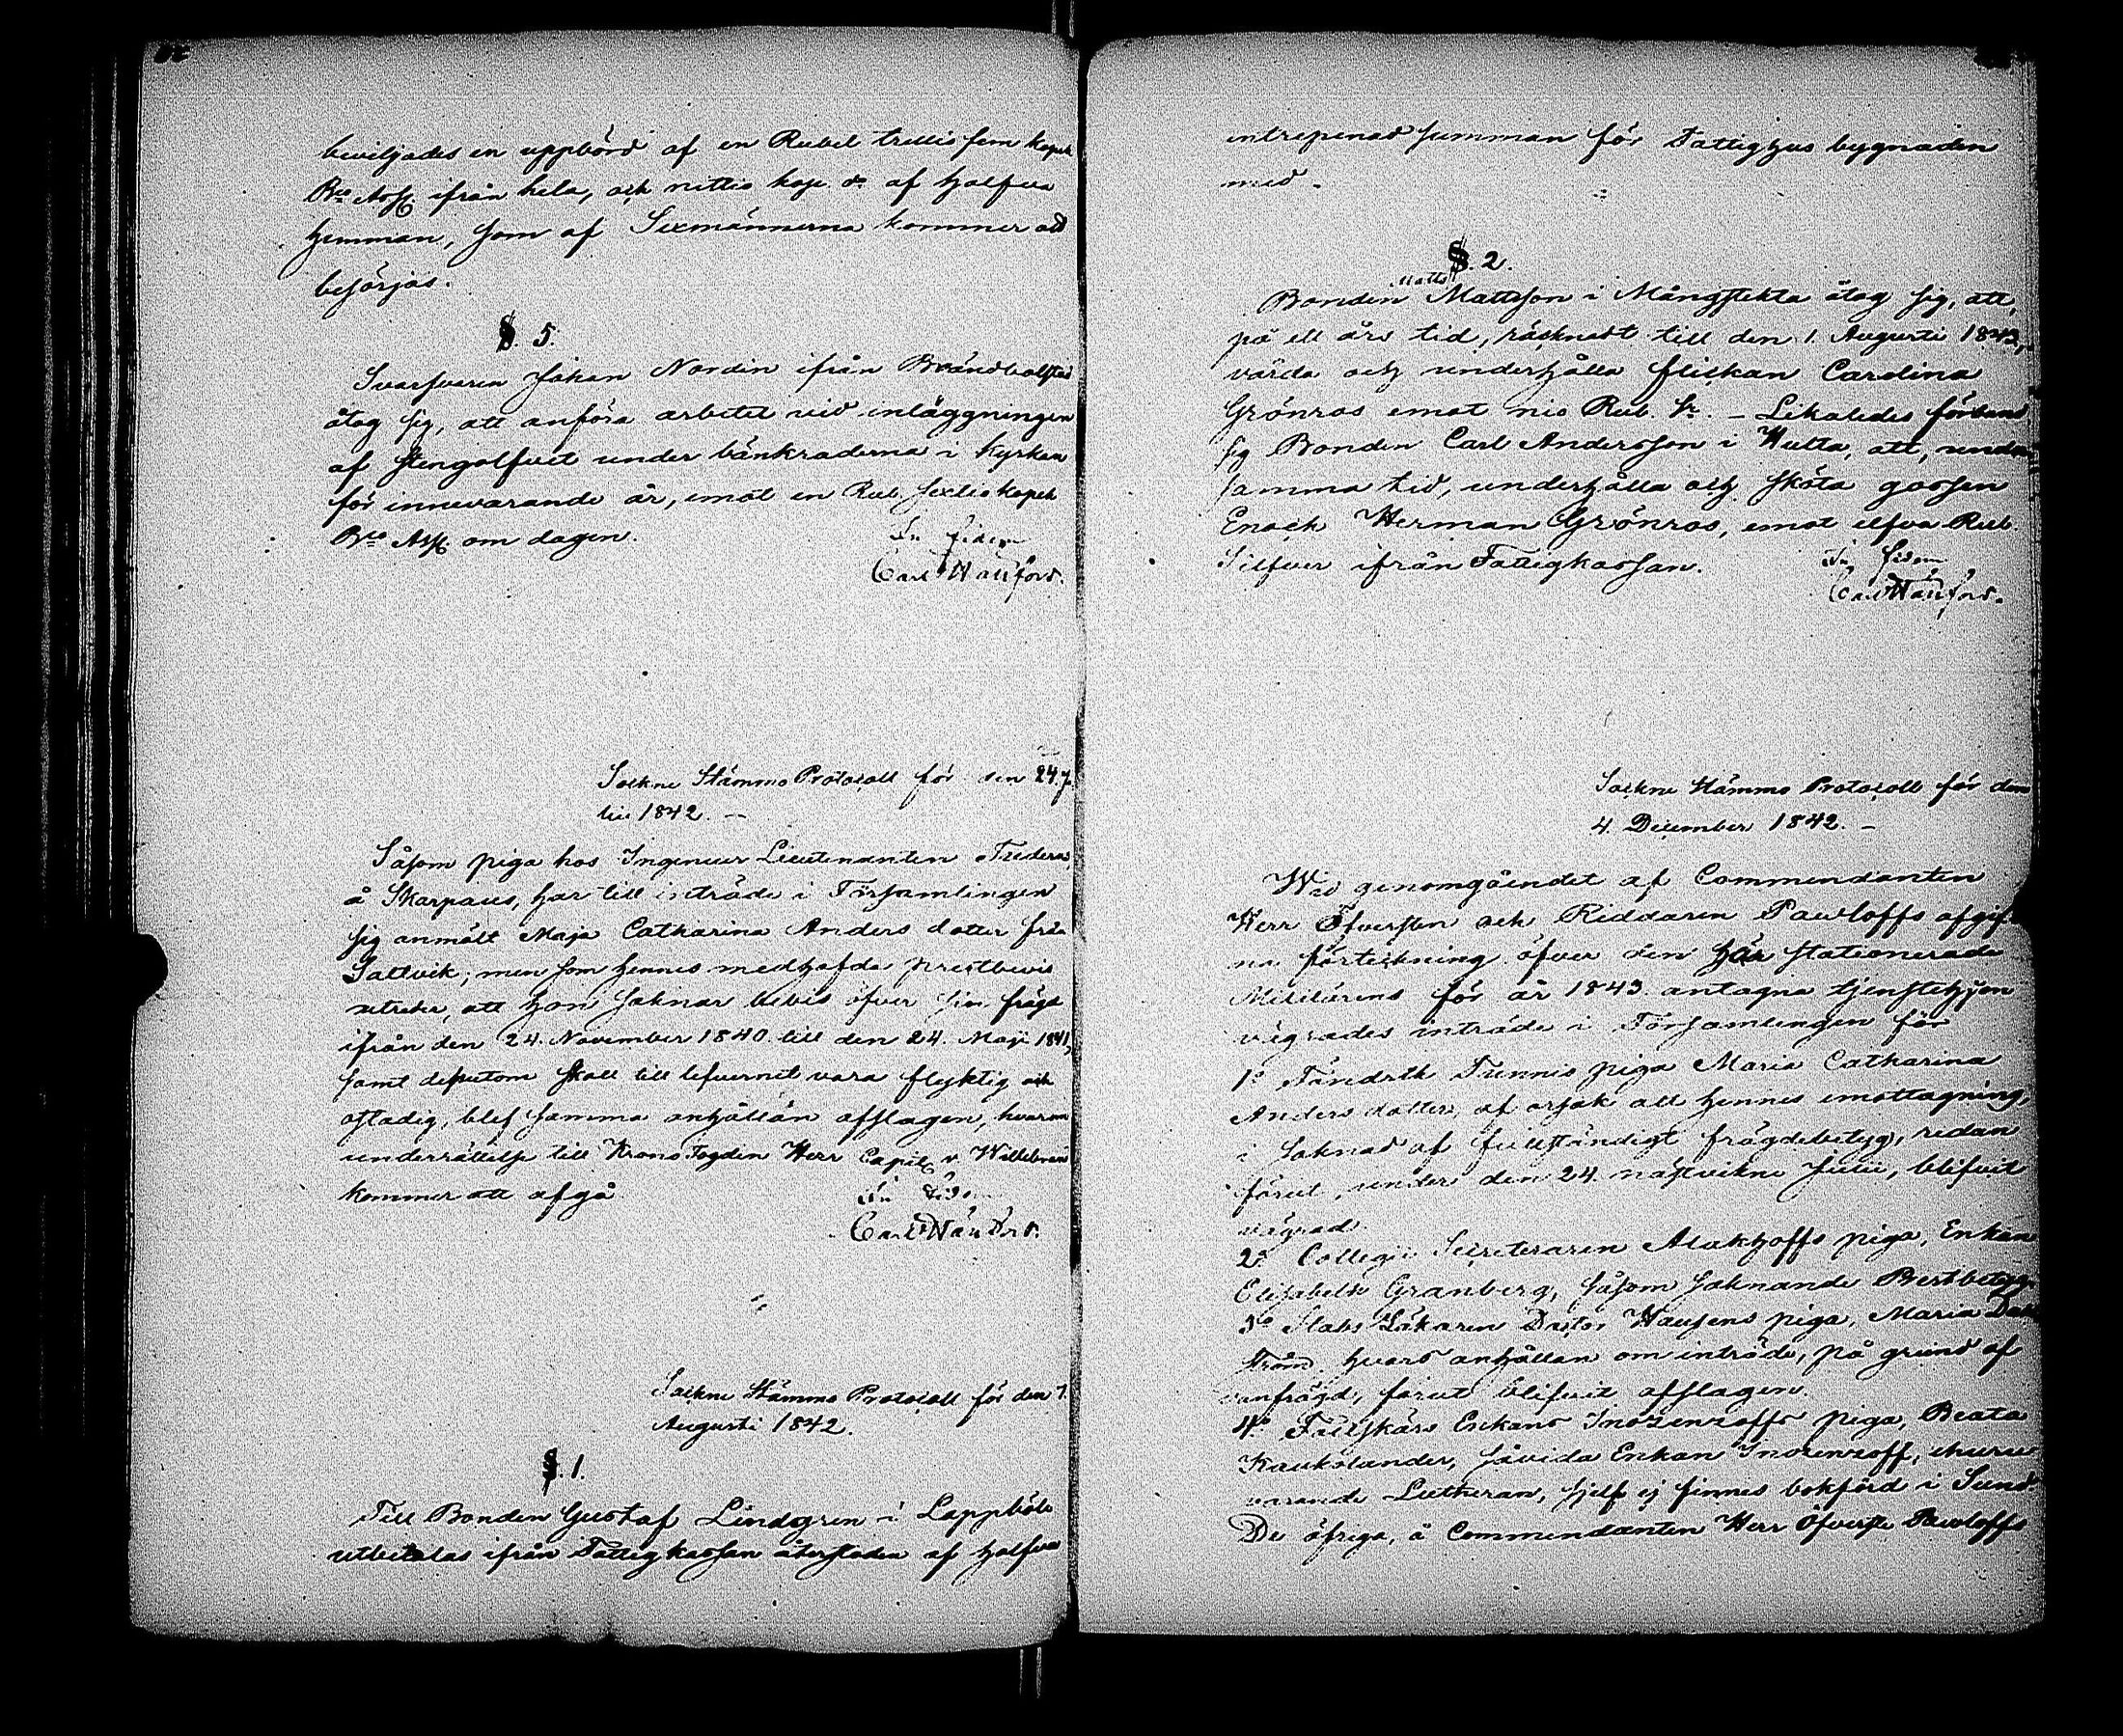 beviljades en uppbörd af en Rubel trettio fem kopek
Bco Assg. ifrån hela, och nittio kop. do af halfva
hemman, som af Sexmännerna kommer att
besörjas.
§. 5.
Svarfvaren Johan Nordin ifrån Brändbolstad
åtog sig, att anföra arbetet vid inläggningen
af stengolfvet under bänkraderna i Kyrkan
för innevarande år, emot en Rub. sextio kopek
Bco Assg. om dagen.
In fidem
Carl Wänford.
Sockne Stämmo Protocoll för den 24 Ju-
lii 1842.
Såsom piga hos Ingenieur Lieutenanten
å Skarpans, har till inträde i Församlingen
sig anmält Maja Catharina Anders dotter från
Saltvik; men som hennes medhafda prestbevis
utreder, att hon saknar bevis öfver sin frägd
ifrån den 24. November 1840 till den 24. Maji 1841,
samt dessutom skall till lefvernet vara flyktig och
ostadig, blef samma anhållan afslagen, hvarom
underrättelse till Krono Fogden Herr Capit. v. Willebrand
kommer att afgå
In fidem
Carl Wänford.
Sockne Stämmo Protocoll för den 7.
Augusti 1842.
§. 1.
Till Bonden Gustaf Lindgren i Lappböle
utbetalas ifrån Fattigkassan återstoden af halfva
entrepenad summan för Fattighus bygnaden
med.
§. 2.
Matts
Bonden Mattsson i Mångstekta åtog sig, att,
på ett års tid, räcknadt till den 1. Augusti 1843,
vårda och underhålla flickan Carolina
Grönros emot nio Rub. Sr. – Likaledes förband
sig Bonden Carl Andersson i Hulta, att, under
samma tid, underhålla och sköta gossen
Enoch Herman Grönros, emot elfva Rub.
Silfver ifrån Fattigkassan.
In fidem
Carl Wänford.
Sockne Stämmo Protocoll för den
4. December 1842.
Wid genomgåendet af Commendanten
Herr Öfversten och Riddaren Pawloffs afgif-
na förteckning öfver den här stationerade
Militärens för år 1843 antagna tjenstehjon
vägrades inträde i Församlingen för
1o Fändrik Tunnis piga Maria Catharina
Anders dotter, af orsak att hennes emottagning,
i saknad af fullständigt frägdebetyg, redan
förut, under den 24. nästvikne Julii, blifvit
vägrad
2o Collegii Secreteraren Alukhoffs piga, Enkan
Elisabeth Granberg, såsom saknande Prestbetyg.
3o Stabs Läkaren Doctor Hausens piga, Maria Dal
ström, hvars anhållan om inträde, på grund af
vanfrägd, förut blifvit afslagen.
4o Fältskärs Enkans Inosenzoffs piga, Beata
Kaukolander, såvida Enkan Inosenzoff, ehuru
varande Lutheran, sjelf ej finnes bokförd i Sund.
De öfriga, å Commendanten Herr Öfverste Pawloffs